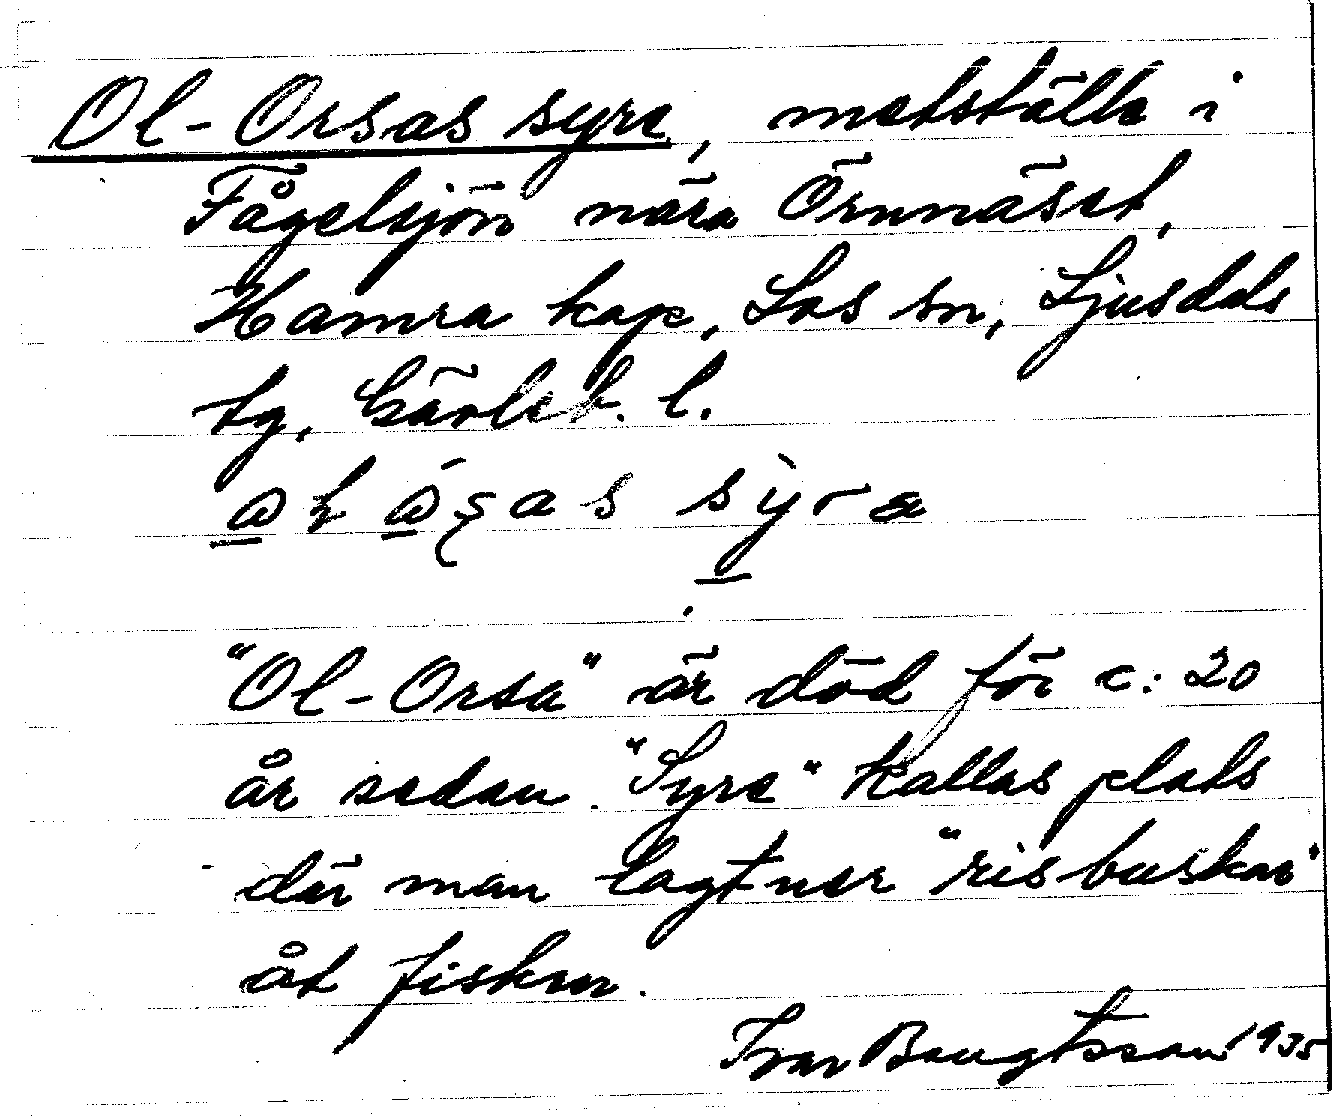 Ol-Orsas syre, metställe i
Fågelsjön nära Örnnäset,
Hamra kap, Los sn, Ljusdals
tg, Gävleb. l.
"Ol-Orsa" är död för c: 20
år sedan. "Syre" kallas plats
där man lagt ner "risbuskar"
åt fisken.
Ivar Bengtsson 1935